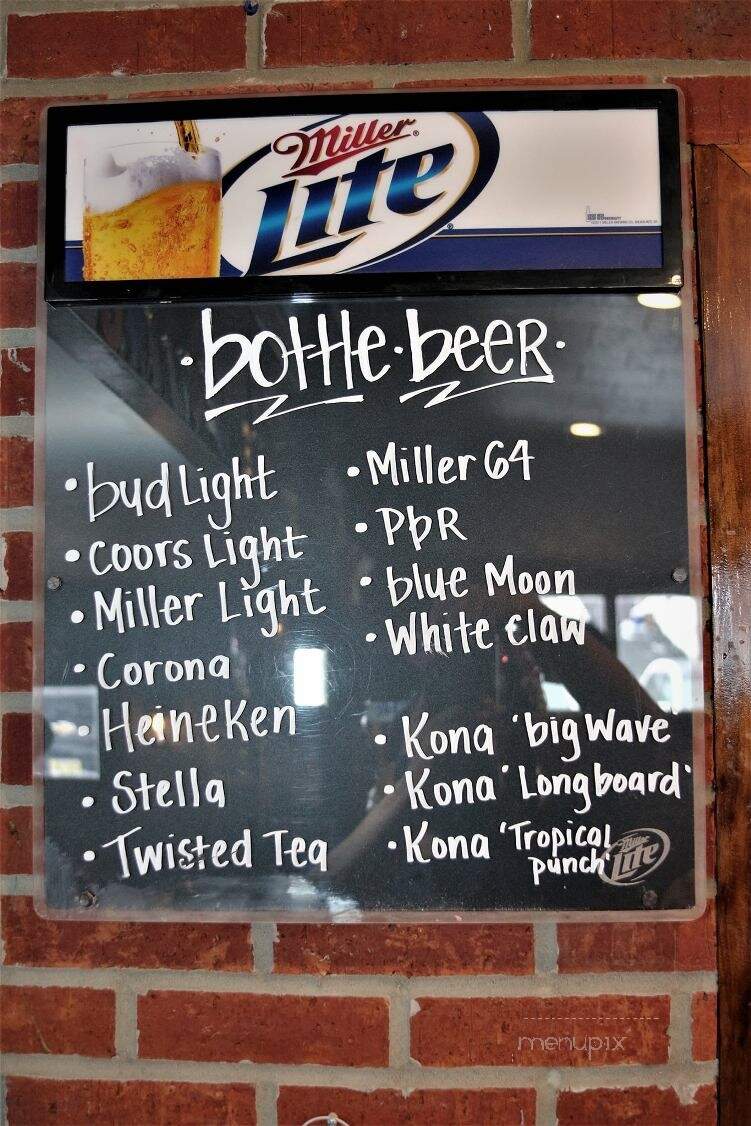 Miller
Lite
·bottle·beer·
• bud Light
• Coors Light
• Miller Light
• Corona
• Heineken
• Stella
• Twisted Tea
• Miller 64
• PbR
• blue Moon
• White Claw
• Kona 'big Wave'
• Kona 'Longboard'
• Kona 'Tropical
punch'
Miller
Lite
menupix